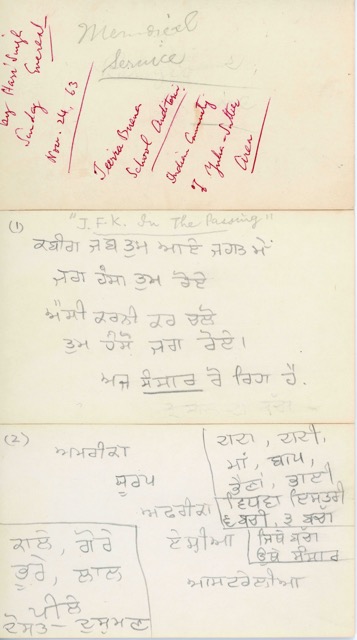 Memorial
Service
by Hari Singh
Sunday Everest
Nov. 24, 63
Tierra Buena
School Auditori
Indian Community
of Yuba-Sutter
Area
(1) "J.F.K. In The Passing"
ਕਬੀਰਾ ਜਬ ਤੁਮ ਆਏ ਜਗਤ ਮੇਂ
ਜਗ ਹੰਸਾ ਤੁਮ ਰੋਏ
ਐਸੀ ਕਰਨੀ ਕਰ ਚਲੋ
ਤੁਮ ਹੰਸੋ ਜਗ ਰੋਏ।
ਅਜ ਸੰਸਾਰ ਰੋ ਰਿਹਾ ਹੈ.
(2)
ਅਮਰੀਕਾ
ਯੂਰਪ
ਅਫਰੀਕਾ
ਏਸ਼ੀਆ
ਆਸਟਰੇਲੀਆ
ਦਾਦਾ, ਦਾਦੀ,
ਮਾਂ, ਬਾਪ,
ਭੈਣਾਂ, ਭਾਈ
ਵਿਧਵਾ ਇਸਤਰੀ
ਬੱਚੀ, ੩ ਬੱਚਾ
ਸੰਸਾਰ
ਕਾਲੇ, ਗੋਰੇ
ਭੂਰੇ, ਲਾਲ
ਪੀਲੇ
ਦੋਸਤ – ਦੁਸ਼ਮਣ